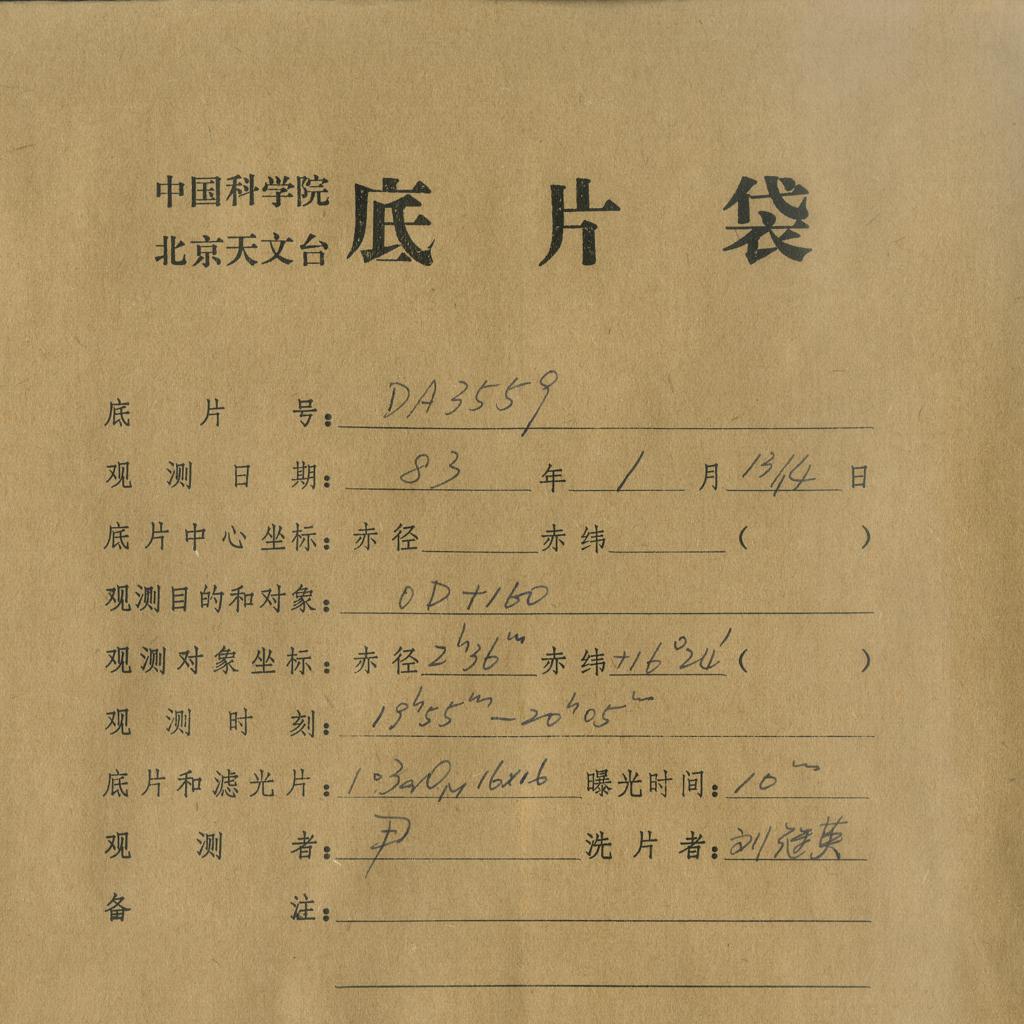 中国科学院
北京天文台
底片袋
底片号：DA3559
观测日期：83年1月13/14日
底片中心坐标：赤径 赤纬 （ ）
观测目的和对象：OD+160
观测对象坐标：赤径2ʰ36ᵐ赤纬+16°24′（ ）
观测时刻：19ʰ55ᵐ—20ʰ05ᵐ
底片和滤光片：16x16 曝光时间：10ᵐ
观测者：尹 洗片者：刘 英
备注：